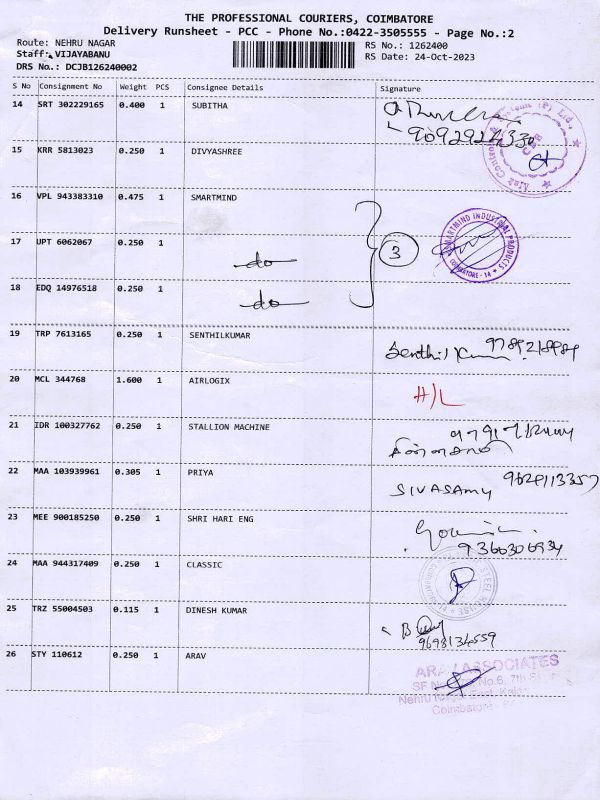 THE PROFESSIONAL COURIERS, COIMBATORE
Delivery Runsheet - PCC - Phone No.:0422-3505555 - Page No.:2
Route: NEHRU NAGAR
RS No.: 1262400
Staff: VIJAYABANU
RS Date: 24-Oct-2023
DRS No.: DCJB126240002
S No Consignment No Weight PCS Consignee Details Signature
14 SRT 302229165 0.400 1 SUBITHA
15 KRR 5813023 0.250 1 DIVYASHREE
16 VPL 943383310 0.475 1 SMARTMIND
SMARTMIND INDUSTRIAL PRODUCTS
COIMBATORE - 14
17 UPT 6062067 0.250 1 do 3
18 EDQ 14976518 0.250 1 do
19 TRP 7613165 0.250 1 SENTHILKUMAR Senthil Kumar 9789218984
20 MCL 344768 1.600 1 AIRLOGIX H/L
21 IDR 100327762 0.250 1 STALLION MACHINE
22 MAA 103939961 0.305 1 PRIYA SIVASAMY
23 MEE 900185250 0.250 1 SHRI HARI ENG 9366306934
24 MAA 944317409 0.250 1 CLASSIC
25 TRZ 55004503 0.115 1 DINESH KUMAR 9698134559
26 STY 110612 0.250 1 ARAV
ASSOCIATES
No.6, 7th
Coimbatore